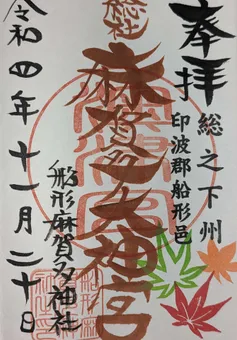 奉拝
総之下州
印波郡船形邑
総社
麻賀多大神宮
船形麻賀多神社
令和四年十一月二十日